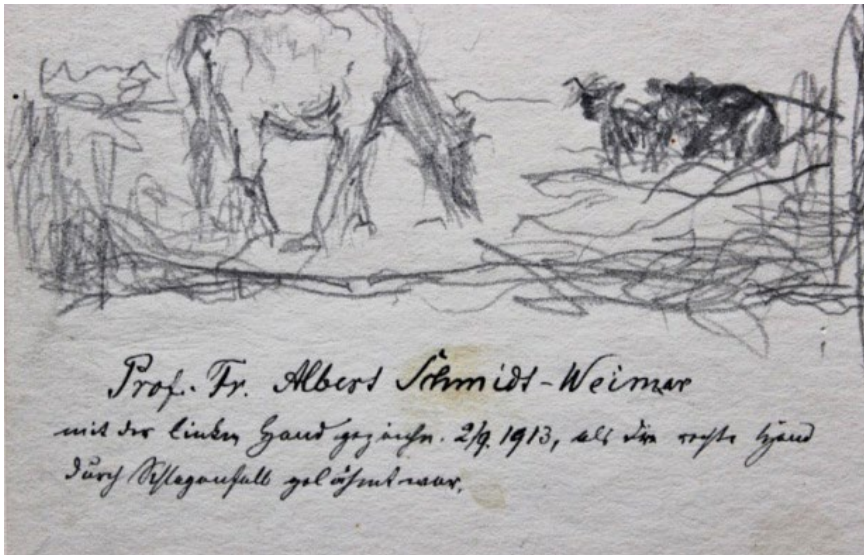 Prof. Fr. Albert Schmidt-Weimar
mit der linken Hand gezeichn. 2/9. 1913, als die rechte Hand
durch Schlaganfall gelähmt war.